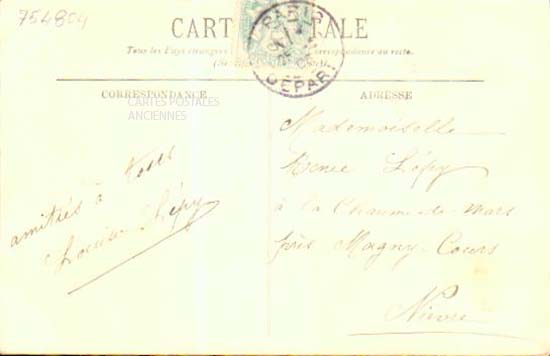 754804
CARTE POSTALE
Tous les Pays étrangers correspondance au recto.
PARIS
DEPART
CORRESPONDANCE
CARTES POSTALES
ANCIENNES
amitiés à tous
Louise Lépy
ADRESSE
Mademoiselle
Renée Lépy
à la Chaume-de-Mars
près Magny-Cours
Nièvre